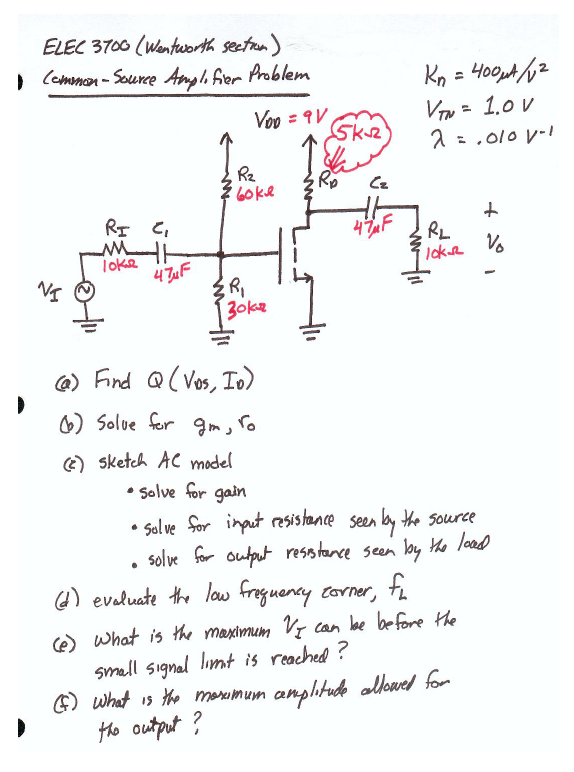 ELEC 3700 (Wentworth section)
Common-Source Amplifier Problem
Kn = 400μA/V²
VTN = 1.0 V
λ = .010 V-1
VDD = 9V
5kΩ
R2
60kΩ
RD
C2
47μF
RL
10kΩ
+
Vo
-
RI
10kΩ
C1
47μF
VI
R1
30kΩ
(a) Find Q (VDS, ID)
(b) Solve for gm, ro
(c) sketch AC model
• solve for gain
• solve for input resistance seen by the source
• solve for output resistance seen by the load
(d) evaluate the low frequency corner, fL
(e) What is the maximum VI can be before the
small signal limit is reached?
(f) What is the maximum amplitude allowed for
the output?